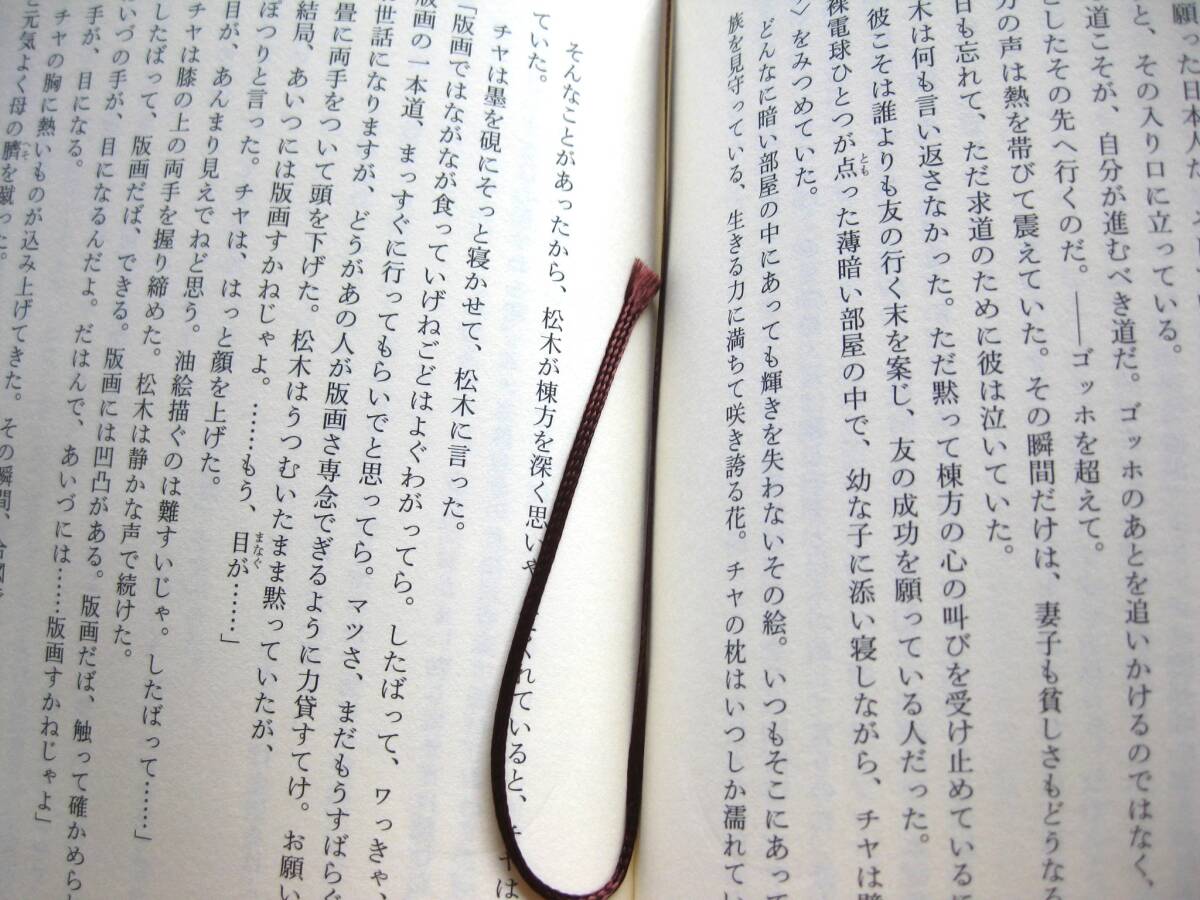 願った日本人た
と、その入り口に立っている。
道こそが、自分が進むべき道だ。ゴッホのあとを追いかけるのではなく、
としたその先へ行くのだ。――ゴッホを超えて。
方の声は熱を帯びて震えていた。その瞬間だけは、妻子も貧しさもどうなる
日も忘れて、ただ求道のために彼は泣いていた。
木は何も言い返さなかった。ただ黙って棟方の心の叫びを受け止めている
彼こそは誰よりも友の行く末を案じ、友の成功を願っている人だった。
裸電球ひとつが点った薄暗い部屋の中で、幼な子に添い寝しながら、チヤは壁
〉をみつめていた。
どんなに暗い部屋の中にあっても輝きを失わないその絵。いつもそこにあって
族を見守っている、生きる力に満ちて咲き誇る花。チヤの枕はいつしか濡れてい
そんなことがあったから、松木が棟方を深く思いや くれていると、チヤは
ていた。
チヤは墨を硯にそっと寝かせて、松木に言った。
「版画ではながなが食っていげねごどはよぐわがってら。したばって、ワっきゃ、
版画の一本道、まっすぐに行ってもらいでと思ってら。マツさ、まだもうすばらぐ
世話になりますが、どうがあの人が版画さ専念でぎるように力貸すてけ。お願い
畳に両手をついて頭を下げた。松木はうつむいたまま黙っていたが、
結局、あいつには版画すかねじゃよ。……もう、目が……」
ぽつりと言った。チヤは、はっと顔を上げた。
目が、あんまり見えでねど思う。油絵描ぐのは難すいじゃ。したばって……」
チヤは膝の上の両手を握り締めた。松木は静かな声で続けた。
したばって、版画だば、できる。版画には凹凸がある。版画だば、触って確かめら
いづの手が、目になるんだよ。だはんで、あいづには……版画すかねじゃよ」
手が、目になる。
チヤの胸に熱いものが込み上げてきた。その瞬間、
と元気よく母の臍を蹴った。